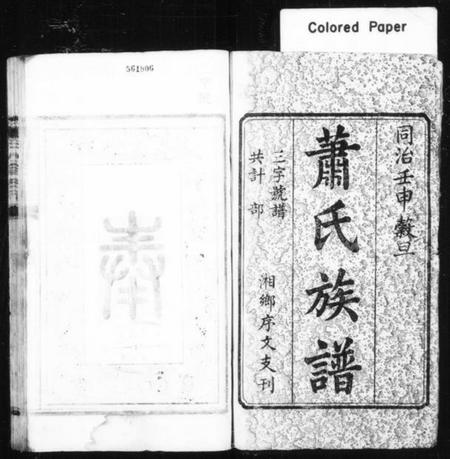 Colored Paper
561806
同治壬申 穀旦
蕭氏族譜
三字號譜
共計 部
湘鄉序文支刊